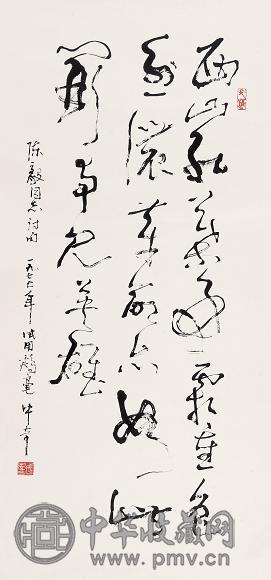 西山红葉好霜重色
愈濃革命亦如此
鬥争见英雄
陈毅同志诗句 一九七六年 试用鸡毫
中华收藏网
www.pmv.cn